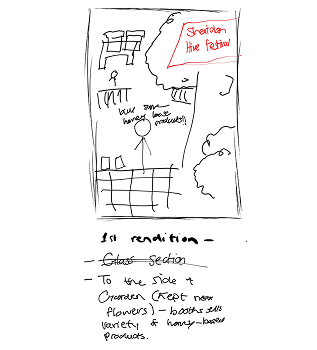 Sheridan
Hive Festival
buy some
honey based
products!!
1st rendition -
- Glass Section
- To the side +
Garden (Kept near
flowers) - booths sells
variety of honey-based
products.